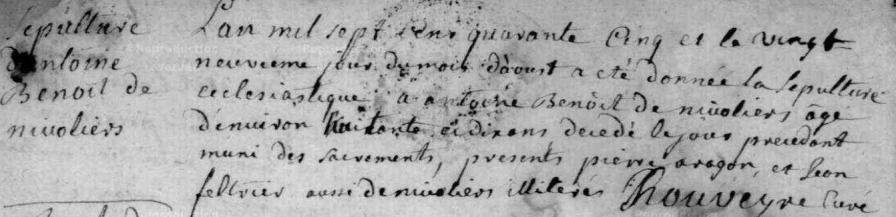 Sepulture
d'antoine
Benoit de
nivoliers
Lan mil sept cens quarante Cinq et le vingt
neuvieme jour du mois d'aoust a eté donnée la Sepulture
ecclesiastique a antoine Benoit de nivoliers âge
d'environ huitante et dix ans decedé le jour precedant
muni des sacrements, presents pierre aragon, et jean
feltrier aussi de nivoliers illiterés Rouveyre Curé